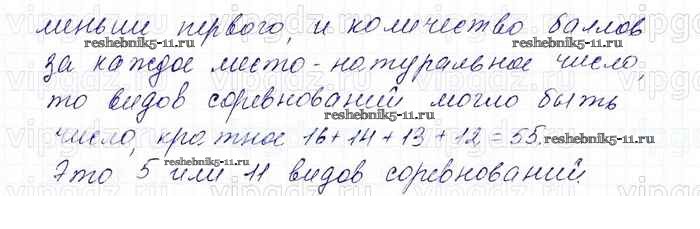 меньше первого, и количество баллов
reshebnik5-11.ru
reshebnik5-11.ru
за каждое место - натуральное число,
то видов соревнований могло быть
reshebnik5-11.ru
число, кратное 16+14+13+12=55.
reshebnik5-11.ru
reshebnik5-11.ru
Это 5 или 11 видов соревнований.